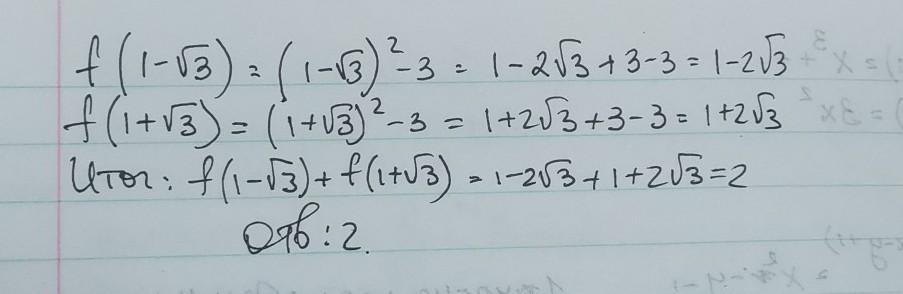 f(1-√3) = (1-√3)²-3 = 1-2√3+3-3 = 1-2√3
f(1+√3) = (1+√3)²-3 = 1+2√3+3-3 = 1+2√3
Итог: f(1-√3)+f(1+√3) = 1-2√3+1+2√3=2
Отв: 2.